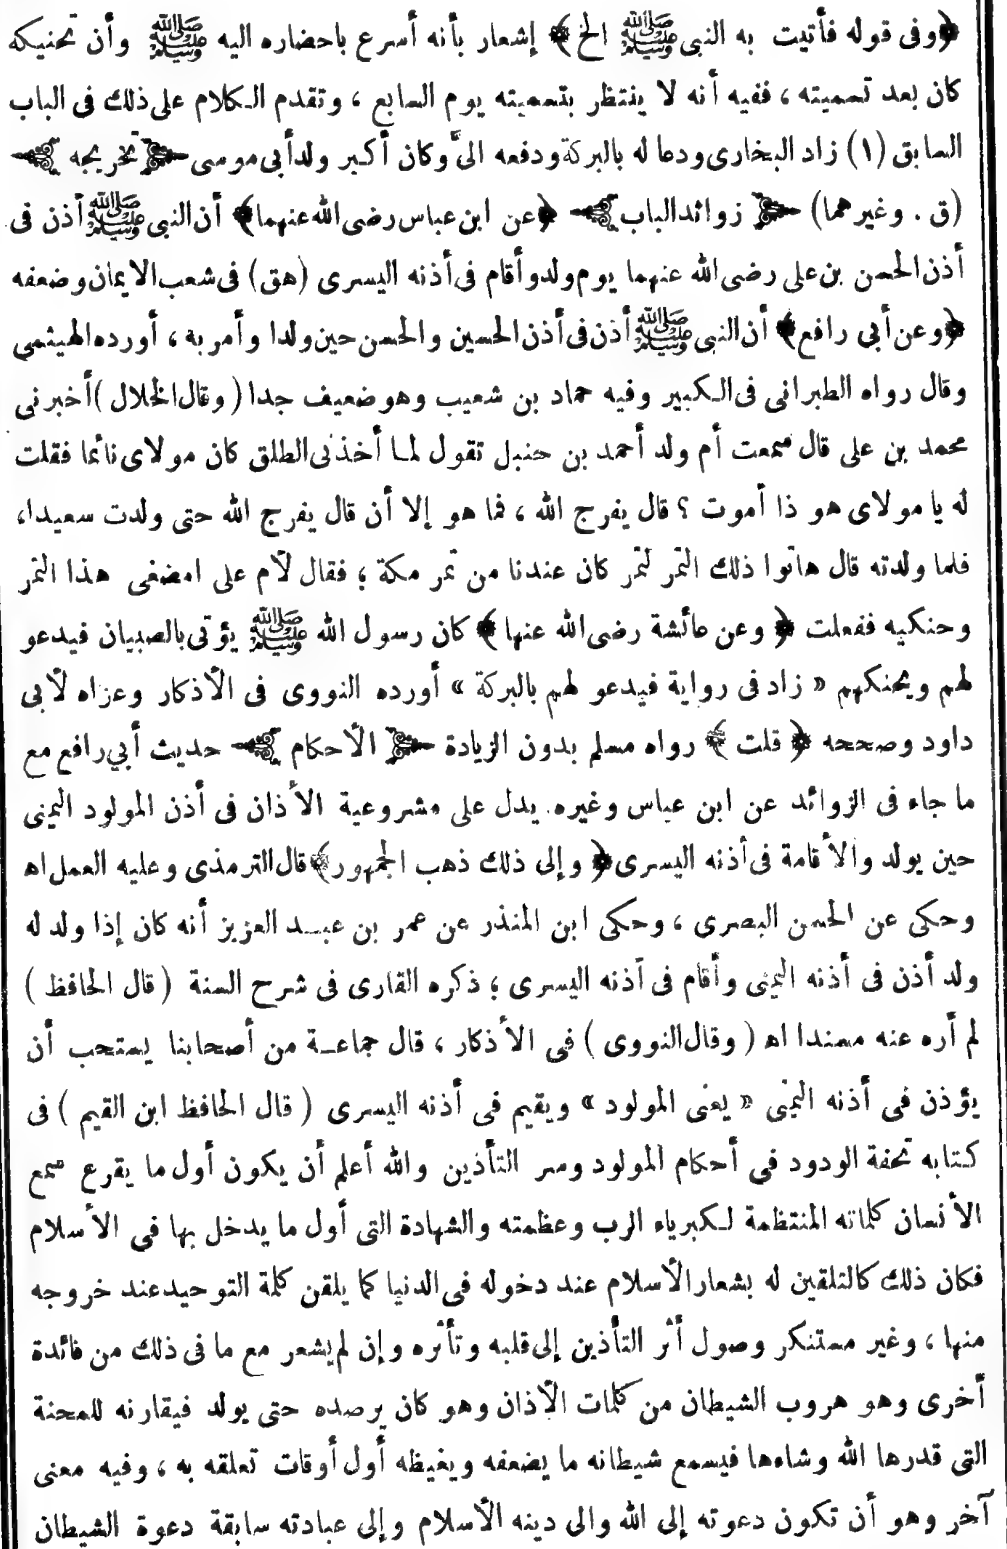 ﴿وفى قوله فأتيت به النبى ﷺ الخ﴾ إشعار بأنه أسرع باحضاره اليه ﷺ وأن تحنيكه
كان بعد تسميته ، ففيه أنه لا ينتظر بتسميته يوم السابع ، وتقدم الكلام على ذلك فى الباب
السابق (١) زاد البخارى ودعا له بالبركة ودفعه الىَّ وكان أكبر ولد أبى موسى ﴿تخريجه﴾
(ق . وغيرهما) ﴿زوائد الباب﴾ ﴿عن ابن عباس رضى الله عنهما﴾ أن النبى ﷺ أذن فى
أذن الحسن بن على رضى الله عنهما يوم ولد وأقام فى أذنه اليسرى (هق) فى شعب الايمان وضعفه
﴿وعن أبى رافع﴾ أن النبى ﷺ أذن فى أذن الحسين والحسن حين ولدا وأمر به ، أورده الهيثمى
وقال رواه الطبرانى فى الكبير وفيه حماد بن شعيب وهو ضعيف جدا (وقال الخلال) أخبرنى
محمد بن على قال سمعت أم ولد أحمد بن حنبل تقول لما أخذنى الطلق كان مولاى نائما فقلت
له يا مولاى هو ذا أموت ؟ قال يفرج الله ، فما هو إلا أن قال يفرج الله حتى ولدت سعيدا،
فلما ولدته قال هاتوا ذلك التمر لتمر كان عندنا من تمر مكة ؛ فقال لأم على امضغى هذا التمر
وحنكيه ففعلت ﴿وعن عائشة رضى الله عنها﴾ كان رسول الله ﷺ يؤتى بالصبيان فيدعو
لهم ويحنكهم « زاد فى رواية فيدعو لهم بالبركة » أورده النووى فى الأذكار وعزاه لأبى
داود وصححه ﴿قلت﴾ رواه مسلم بدون الزيادة ﴿الأحكام﴾ حديث أبي رافع مع
ما جاء فى الزوائد عن ابن عباس وغيره. يدل على مشروعية الأذان فى أذن المولود اليمنى
حين يولد والأقامة فى أذنه اليسرى ﴿وإلى ذلك ذهب الجمهور﴾ قال الترمذى وعليه العمل اه
وحكى عن الحسن البصرى ، وحكى ابن المنذر عن عمر بن عبد العزيز أنه كان إذا ولد له
ولد أذن فى أذنه اليمنى وأقام فى أذنه اليسرى ؛ ذكره القارى فى شرح السنة (قال الحافظ)
لم أره عنه مسندا اه (وقال النووى) فى الأذكار ، قال جماعة من أصحابنا يستحب أن
يؤذن فى أذنه اليمنى « يعنى المولود » ويقيم فى أذنه اليسرى (قال الحافظ ابن القيم) فى
كتابه تحفة الودود فى أحكام المولود وسر التأذين والله أعلم أن يكون أول ما يقرع سمع
الأنسان كلماته المنتظمة لكبرياء الرب وعظمته والشهادة التى أول ما يدخل بها فى الأسلام
فكان ذلك كالتلقين له بشعار الأسلام عند دخوله فى الدنيا كما يلقن كلمة التوحيد عند خروجه
منها ، وغير مستنكر وصول أثر التأذين إلى قلبه وتأثره وإن لم يشعر مع ما فى ذلك من فائدة
أخرى وهو هروب الشيطان من كلمات الأذان وهو كان يرصده حتى يولد فيقارنه للمحنة
التى قدرها الله وشاءها فيسمع شيطانه ما يضعفه ويغيظه أول أوقات تعلقه به ، وفيه معنى
آخر وهو أن تكون دعوته إلى الله والى دينه الأسلام وإلى عبادته سابقة دعوة الشيطان